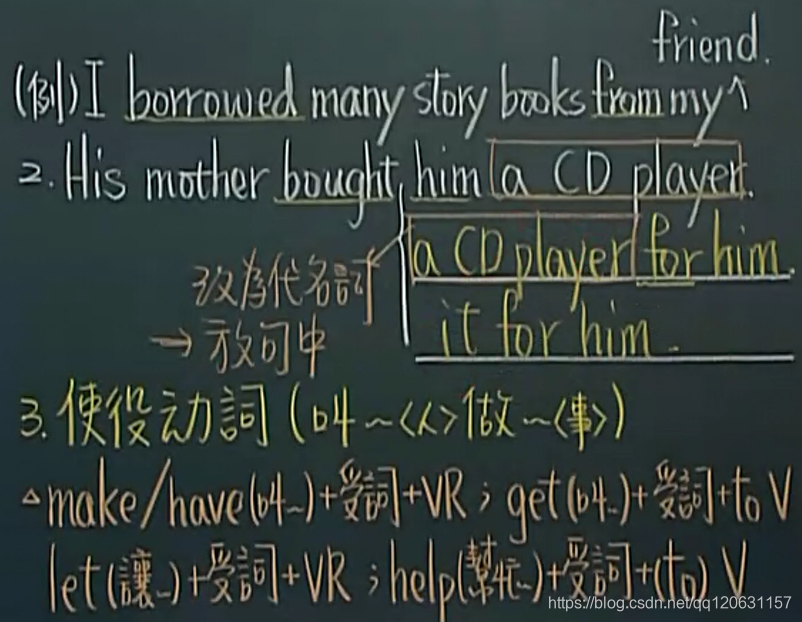 friend.
(例) I borrowed many story books from my ^
2. His mother bought him a CD player.
a CD player for him.
改為代名詞
it for him.
→ 放句中
3. 使役动詞 (叫~<人>做~<事>)
△make/have(叫~)+受詞+VR; get(叫~)+受詞+to V
let(讓~)+受詞+VR; help(幫忙~)+受詞+(to) V
https://blog.csdn.net/qq120631157